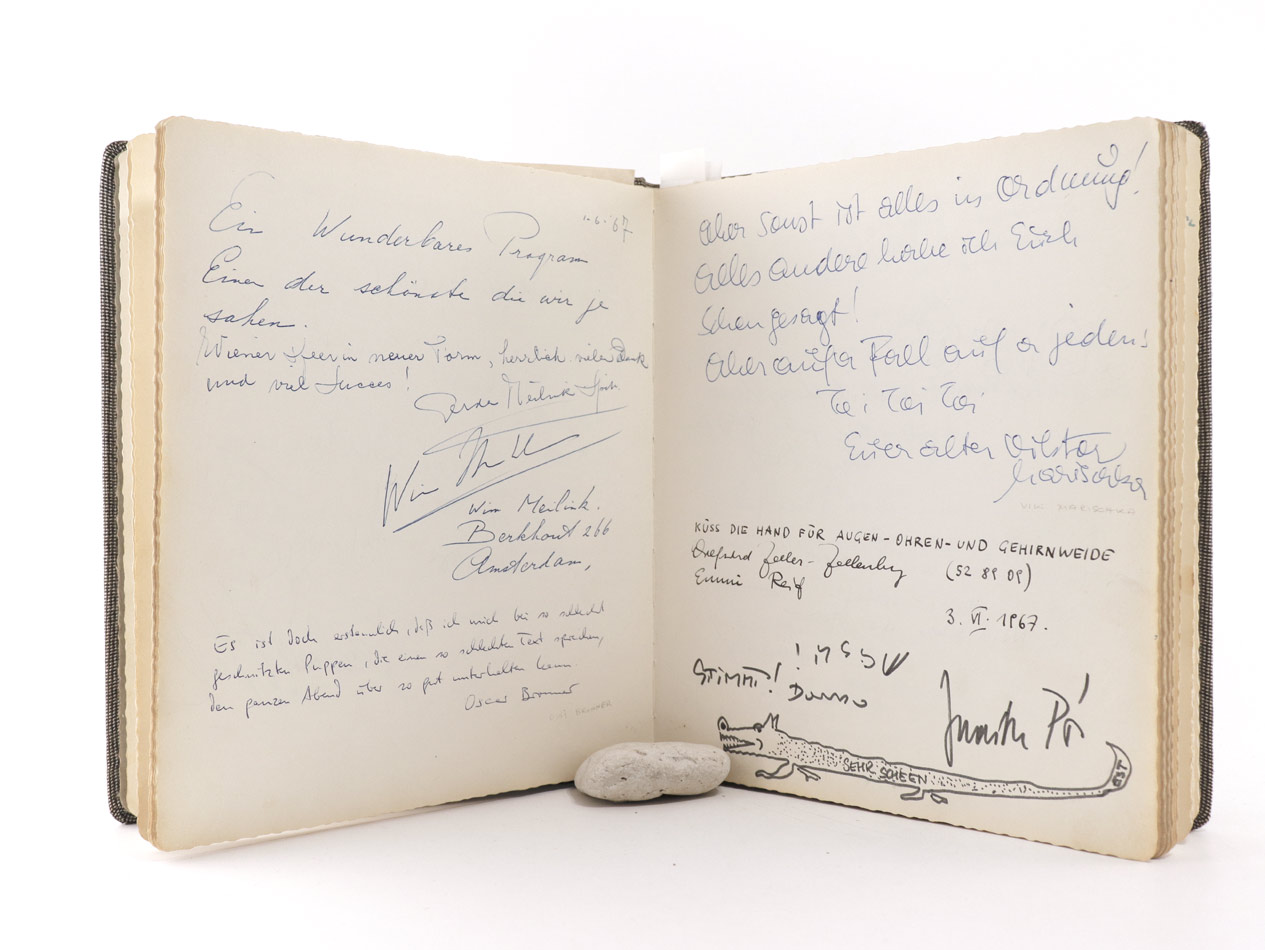 1.6.'67
Ein Wunderbares Program
Einer der schönste die wir je
sahen.
Wiener in neuer Form, herrlich vielen Dank
und viel Succes!
Wim Meilink.
Berkhout 266
Amsterdam,
Es ist doch erstaunlich, daß ich mich bei so schlecht
geschnitzten Puppen, die einen so schlechten Text sprechen,
den ganzen Abend über so gut unterhalten kann.
Oscar Bronner
Aber sonst ist alles in Ordnung!
Alles andere habe ich Euch
schon gesagt!
Aber auf a Fall auf a jeden!
Toi Toi Toi
Euer alter Viktor
Marischka
VIKI MARISCHKA
KÜSS DIE HAND FÜR AUGEN-OHREN-UND GEHIRNWEIDE
Zeller-Zellenberg (52 89 09)
Emmi Reif
3. VI. 1967.
STIMMT!
SEHR SCHEEN
IST